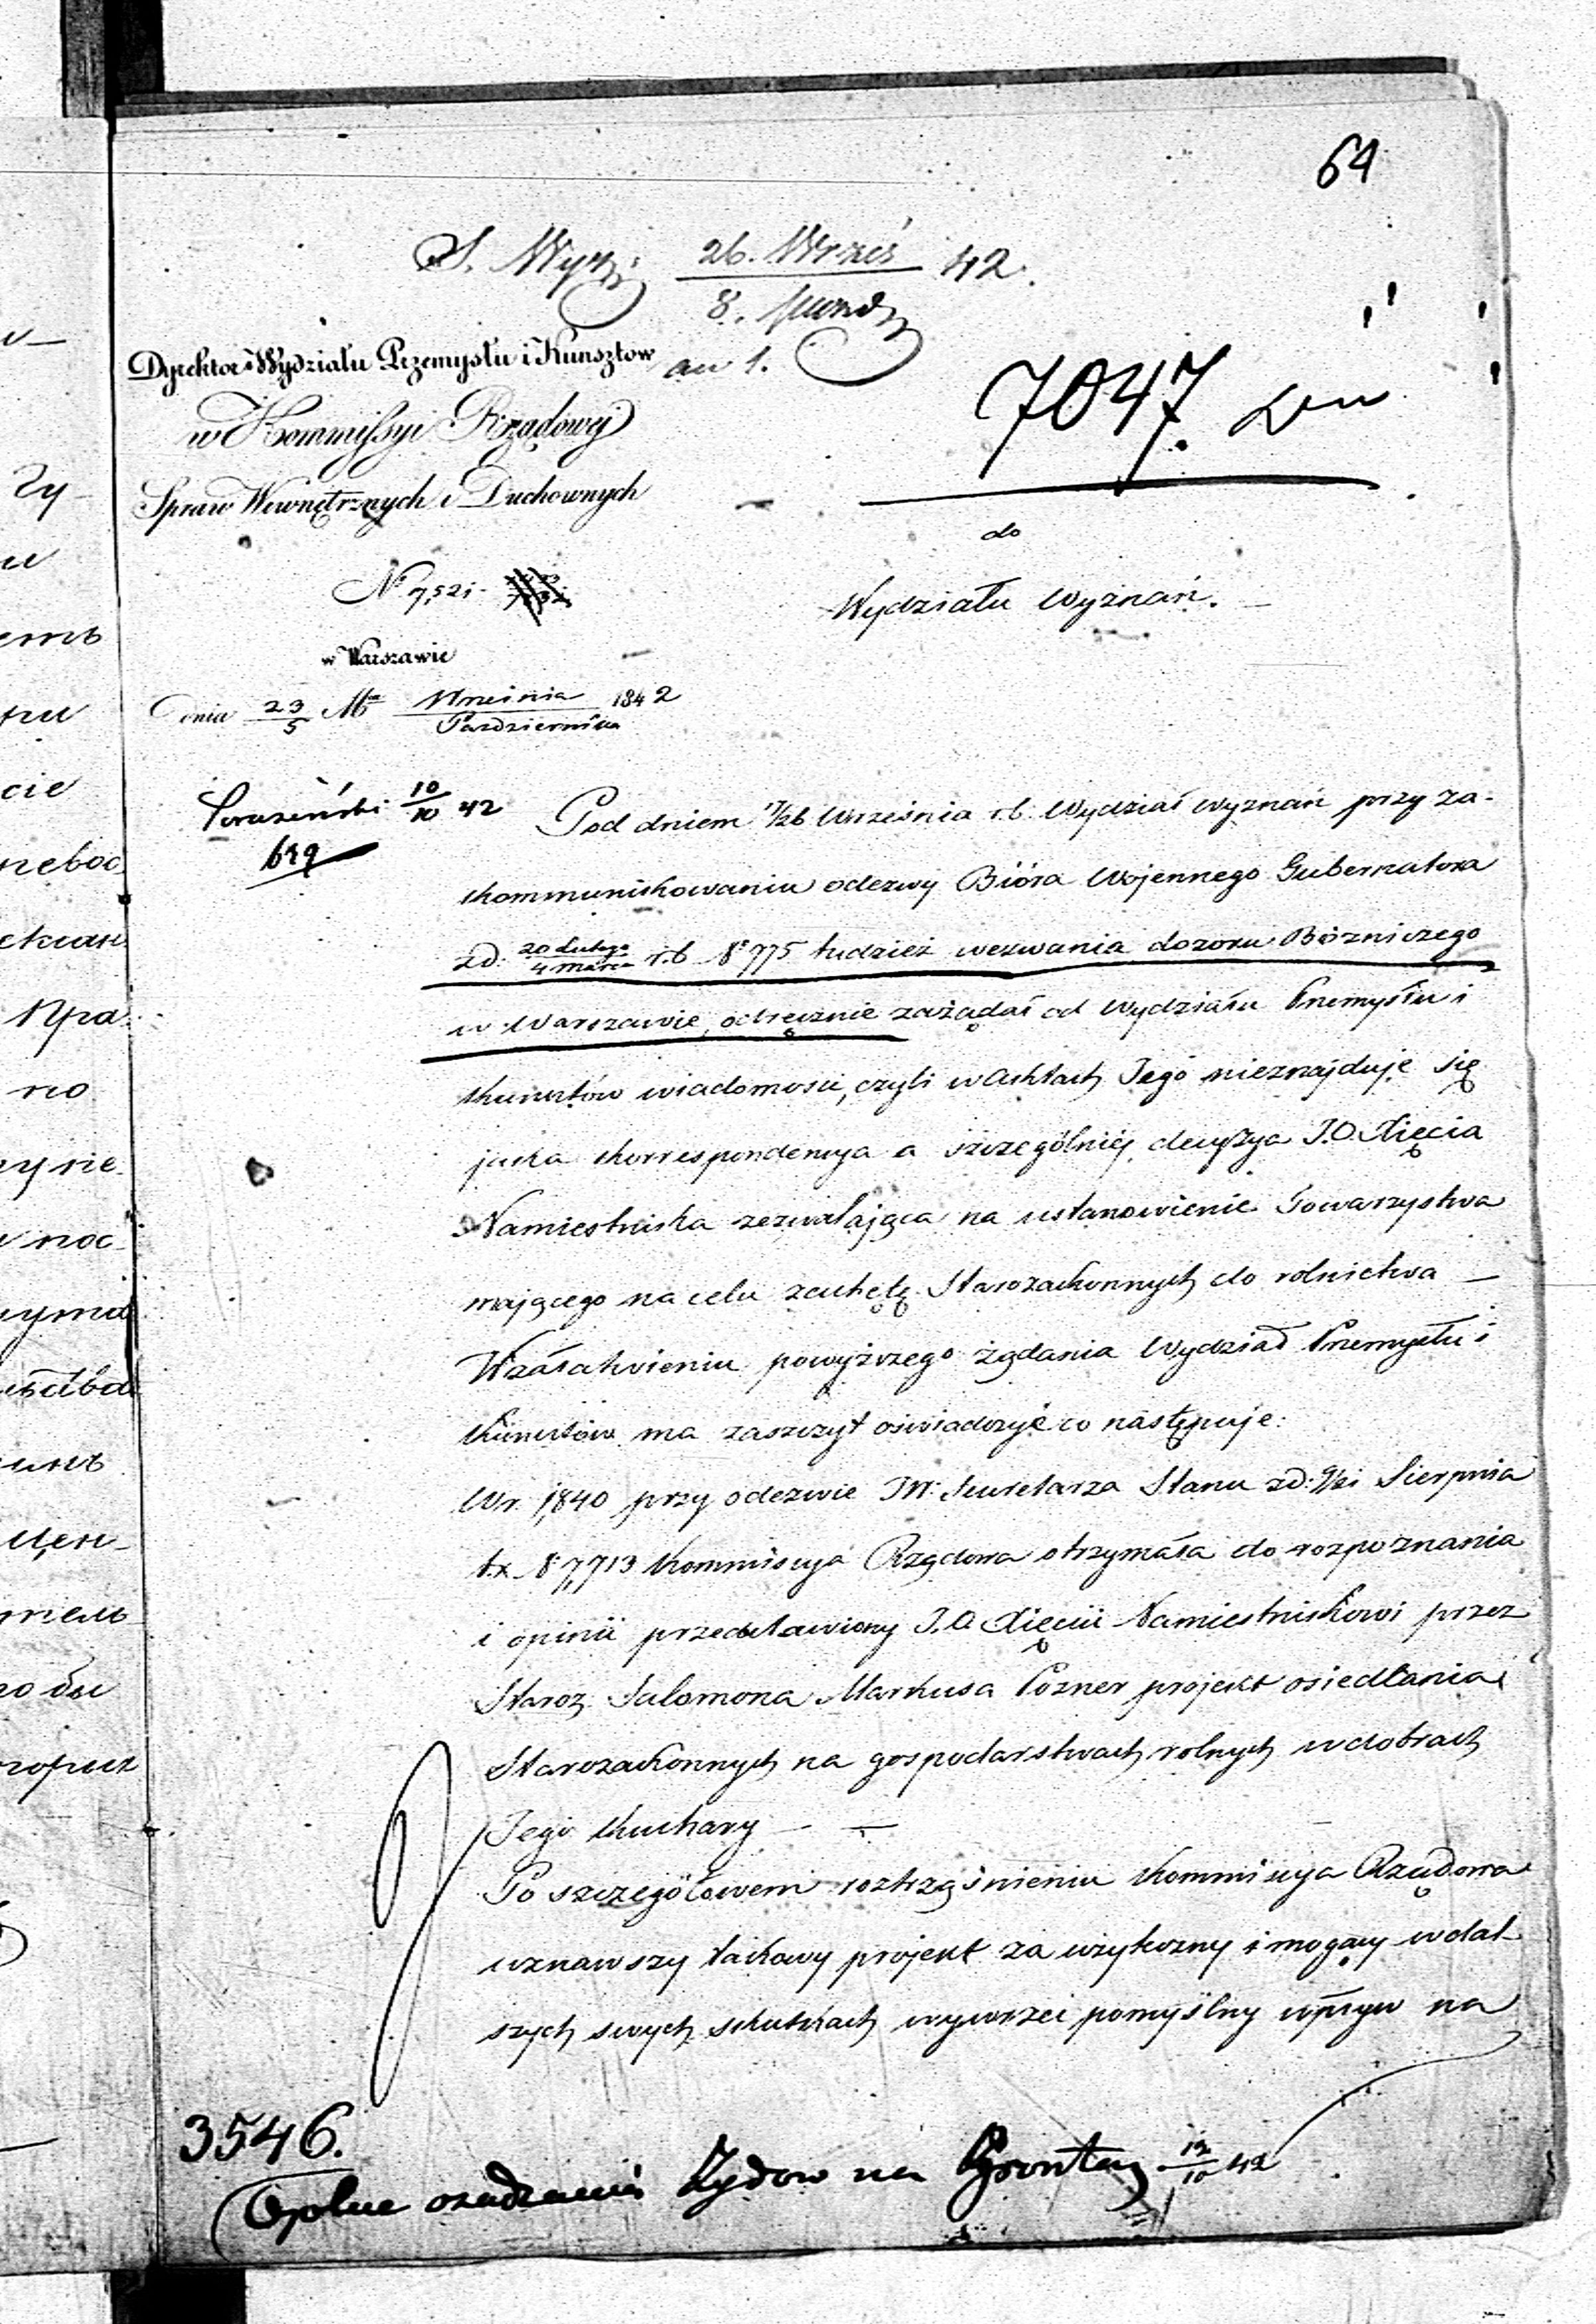 64
S. Wyz: 26. Wrześ 42.
8. Pazd
an 1.
Dyrektor Wydziału Przemysłu i Kunsztow
w Kommissyi Rządowej
Spraw Wewnętrznych i Duchownych
7047.
do
Wydziału Wyznań.
Nº 7,521
w Warszawie
Dnia 23/5 Mca Września/Października 1842
10/10 42
619
Pod dniem 14/26 Września r.b. Wydział Wyznań przy za-
kommunikowaniu odezwy Bióra Wojennego Gubernatora
z d: 20 Lutego/4 Marca r.b. Nº 775 tudzież wezwania dozoru Bożniczego
w Warszawie, odręcznie zażądał od Wydziału Przemysłu i
Kunsztów wiadomości, czyli w Aktach Jego nieznajduje się
jaka korrespondencya a szczególniej decyzya J.O. Xięcia
Namiestnika zezwalająca na ustanowienie Towarzystwa
mającego na celu zachętę Starozakonnych do rolnictwa
W załatwieniu powyższego żądania Wydział Przemysłu i
Kunsztów ma zaszczyt oświadczyć co następuje:
W r. 1840 przy odezwie JW: Sekretarza Stanu z d: 9/21 Sierpnia
t.r. Nº 7,713 Kommissya Rządowa otrzymała do rozpoznania
i opinii przedstawiony J.O. Xięciu Namiestnikowi przez
Staroz. Salomona Markusa Pozner projekt osiedlania
Starozakonnych na gospodarstwach rolnych w dobrach
Jego Kuchary
Po szczegółowem roztrząśnieniu Kommissya Rządowa
uznawszy takowy projekt za użyteczny i mogący w dal-
szych swych skutkach wywrzeć pomyślny wpływ na
3546.
Ogólne osadzania Żydow na Gruntach 12/10 42